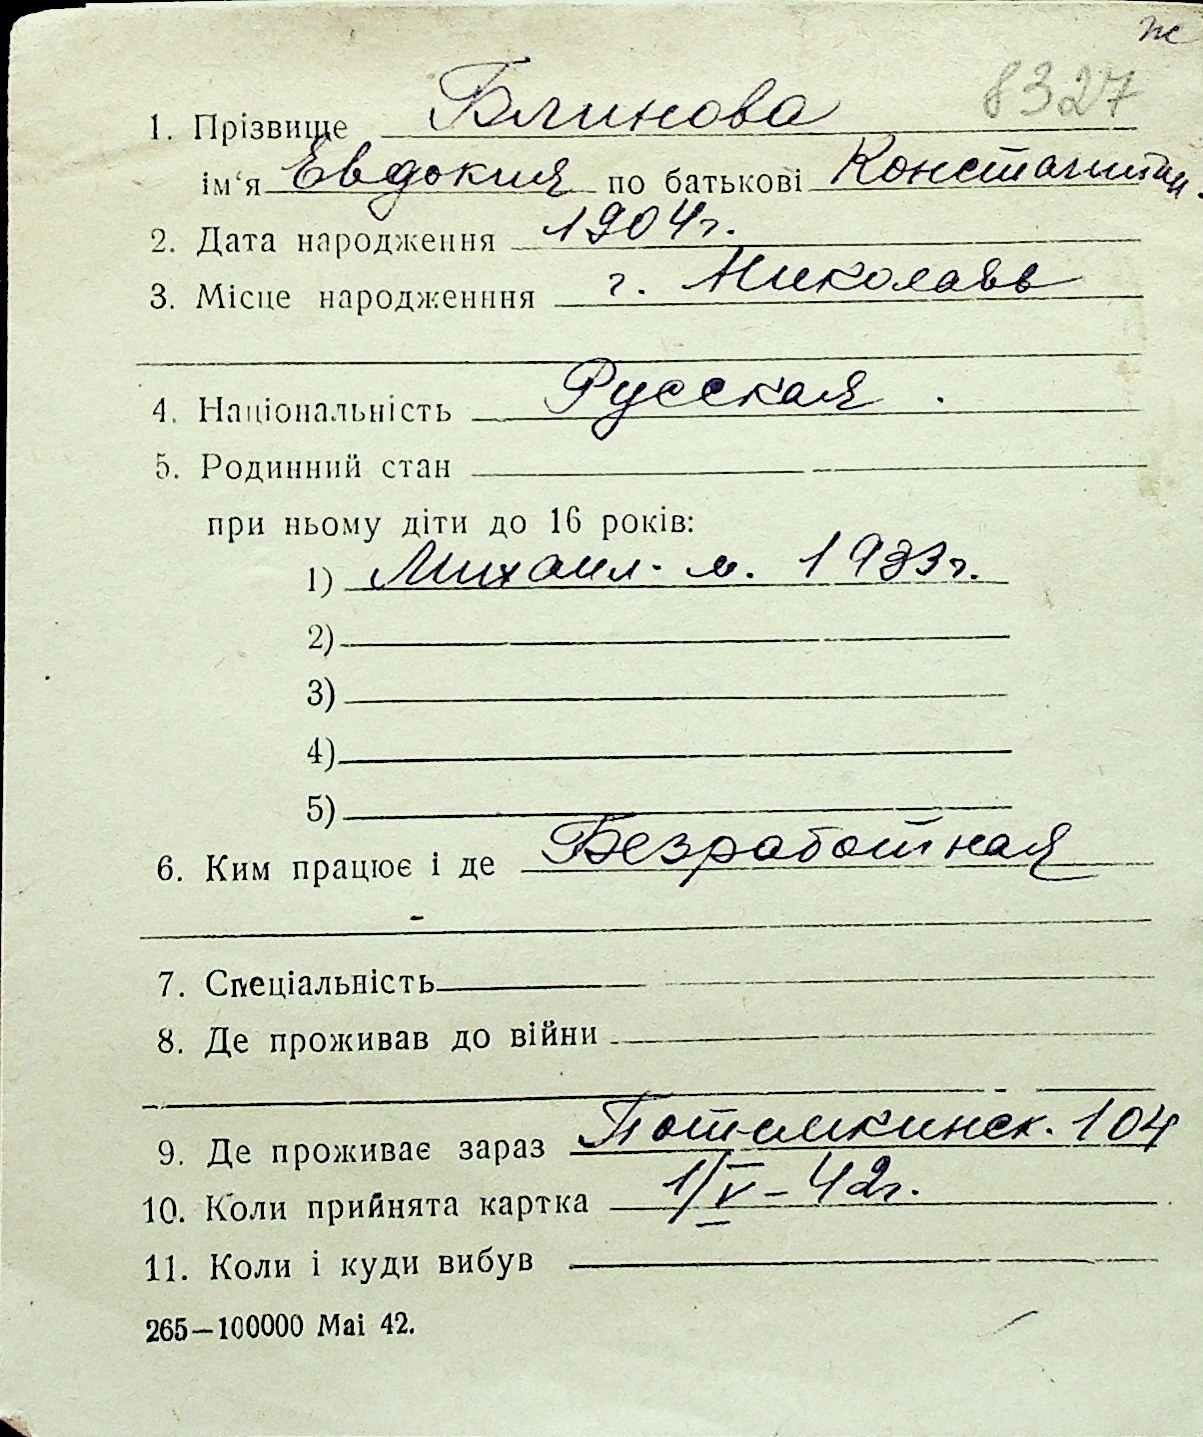 ж
8327
1. Прізвище Блинова
ім'я Евдокия по батькові Константин.
2. Дата народження 1904 г.
3. Місце народженння г. Николаев
4. Національність Русская.
5. Родинний стан
при ньому діти до 16 років:
1) Михаил. м. 1933 г.
2)
3)
4)
5)
6. Ким працює і де Безработная
7. Спеціальність
8. Де проживав до війни
9. Де проживає зараз Потемкинск. 104
10. Коли прийнята картка 1/V-42 г.
11. Коли і куди вибув
265—100000 Mai 42.